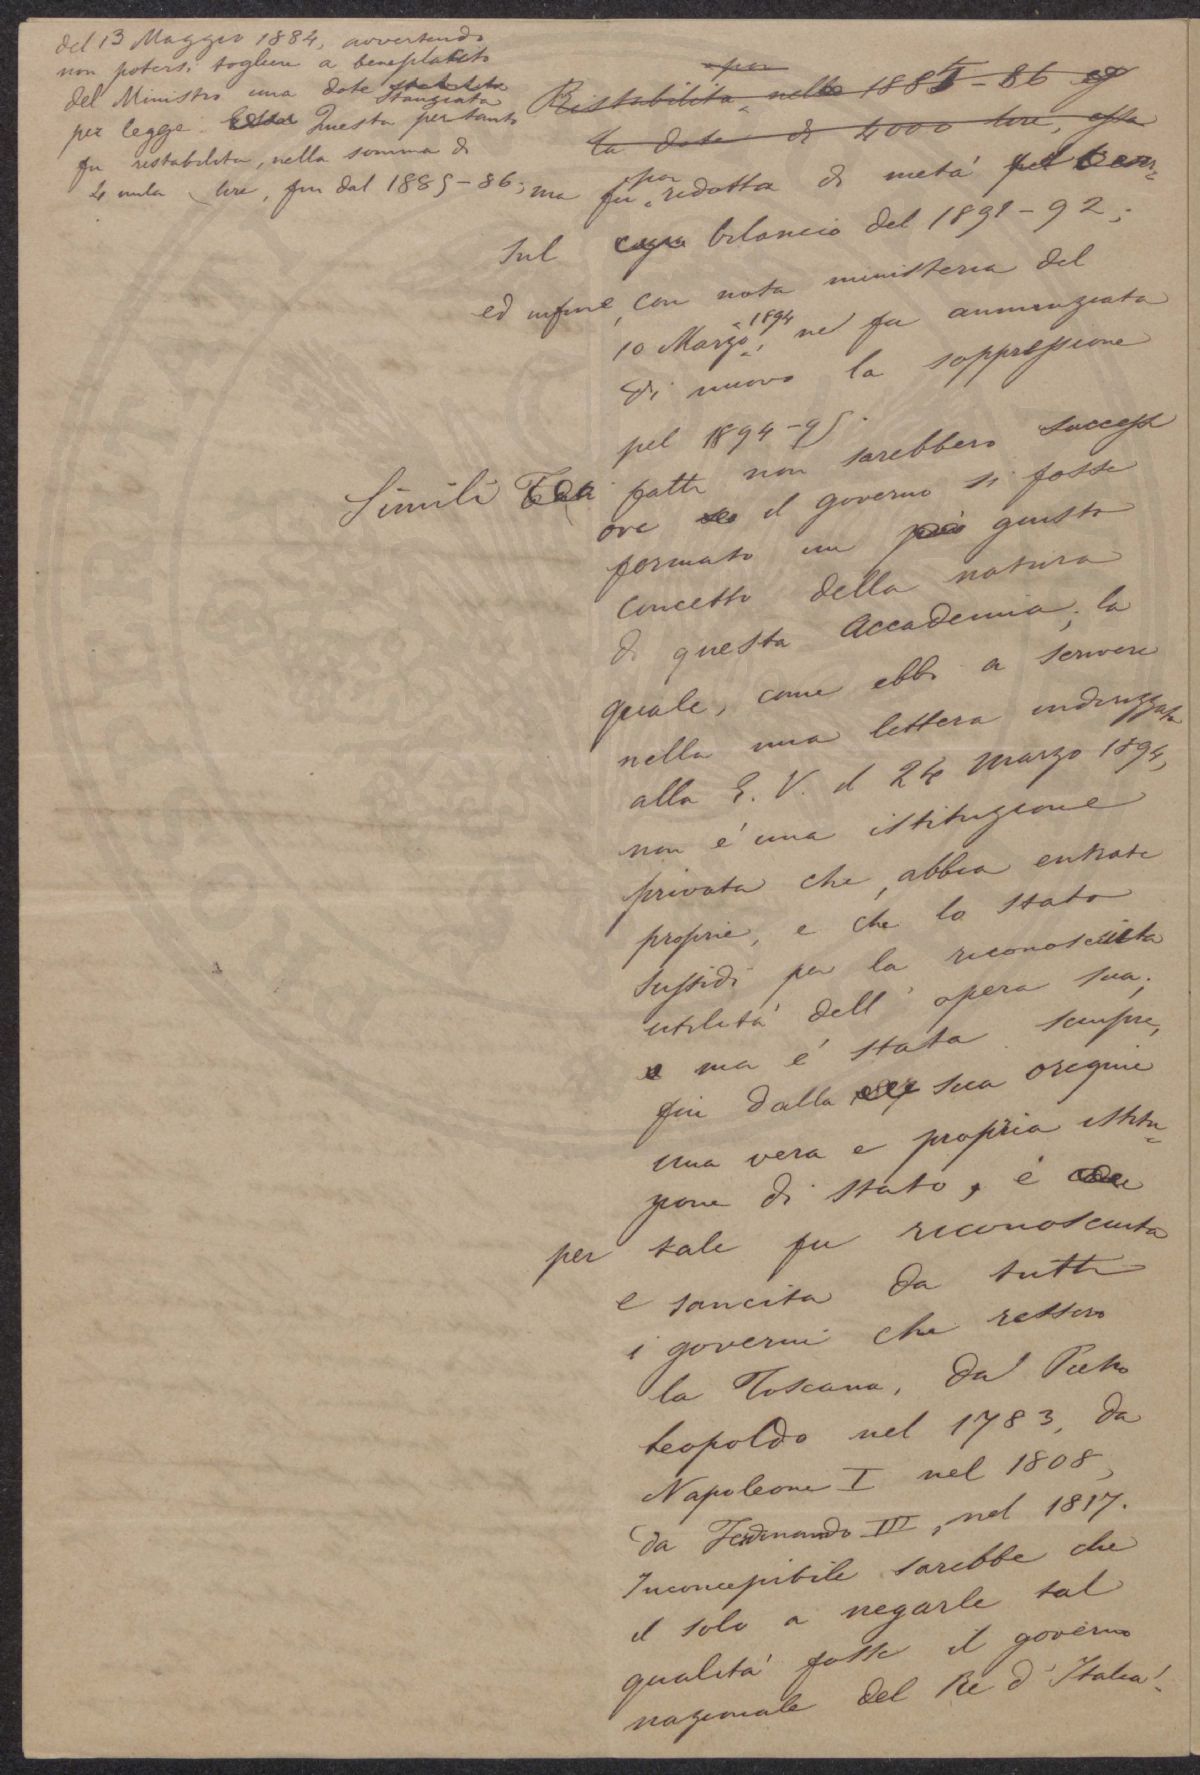 del 13 Maggio 1884, avvertendo
non potersi togliere a beneplacito
del Ministro una dote stabilita
stanziata
per legge. Questa pertanto
fu restabilita, nella somma di
4 mila lire, fin dal 1885-86;
poi
Ristabilita nell 1885-86 
la dote di 4000 lire, essa
poi
ma fu ridotta di metá 
sul bilancio del 1891-92;
ed infine, con nota ministeria del
1894
10 Marzo, ne fu annunziata
di nuovo la soppressione
pel 1894-95.
Simili fatti non sarebbero success
ove il governo si fosse
formato un più giusto
concetto della natura
di questa Accademia; la
quale, come ebbi a scrivere
nella mia lettera indirizzata
alla E. V. il 24 Marzo 1894,
non é una istituzione
privata che abbia entrate
proprie, e che lo stato
sussidi per la riconosciuta
utilitá dell' opera sua;
ma é stata sempre,
fin dalla sua origine
una vera e propria istitu=
zione di stato, é
per tale fu riconosciuta
e sancita da tutti
i governi che ressero
la Toscana, da Pietro
Leopoldo nel 1783, da
Napoleone I nel 1808,
da Ferdinando III, nel 1817.
Inconcepibile sarebbe che
il solo a negarle tal
qualitá fosse il governo
nazionale del Re d'Italia!